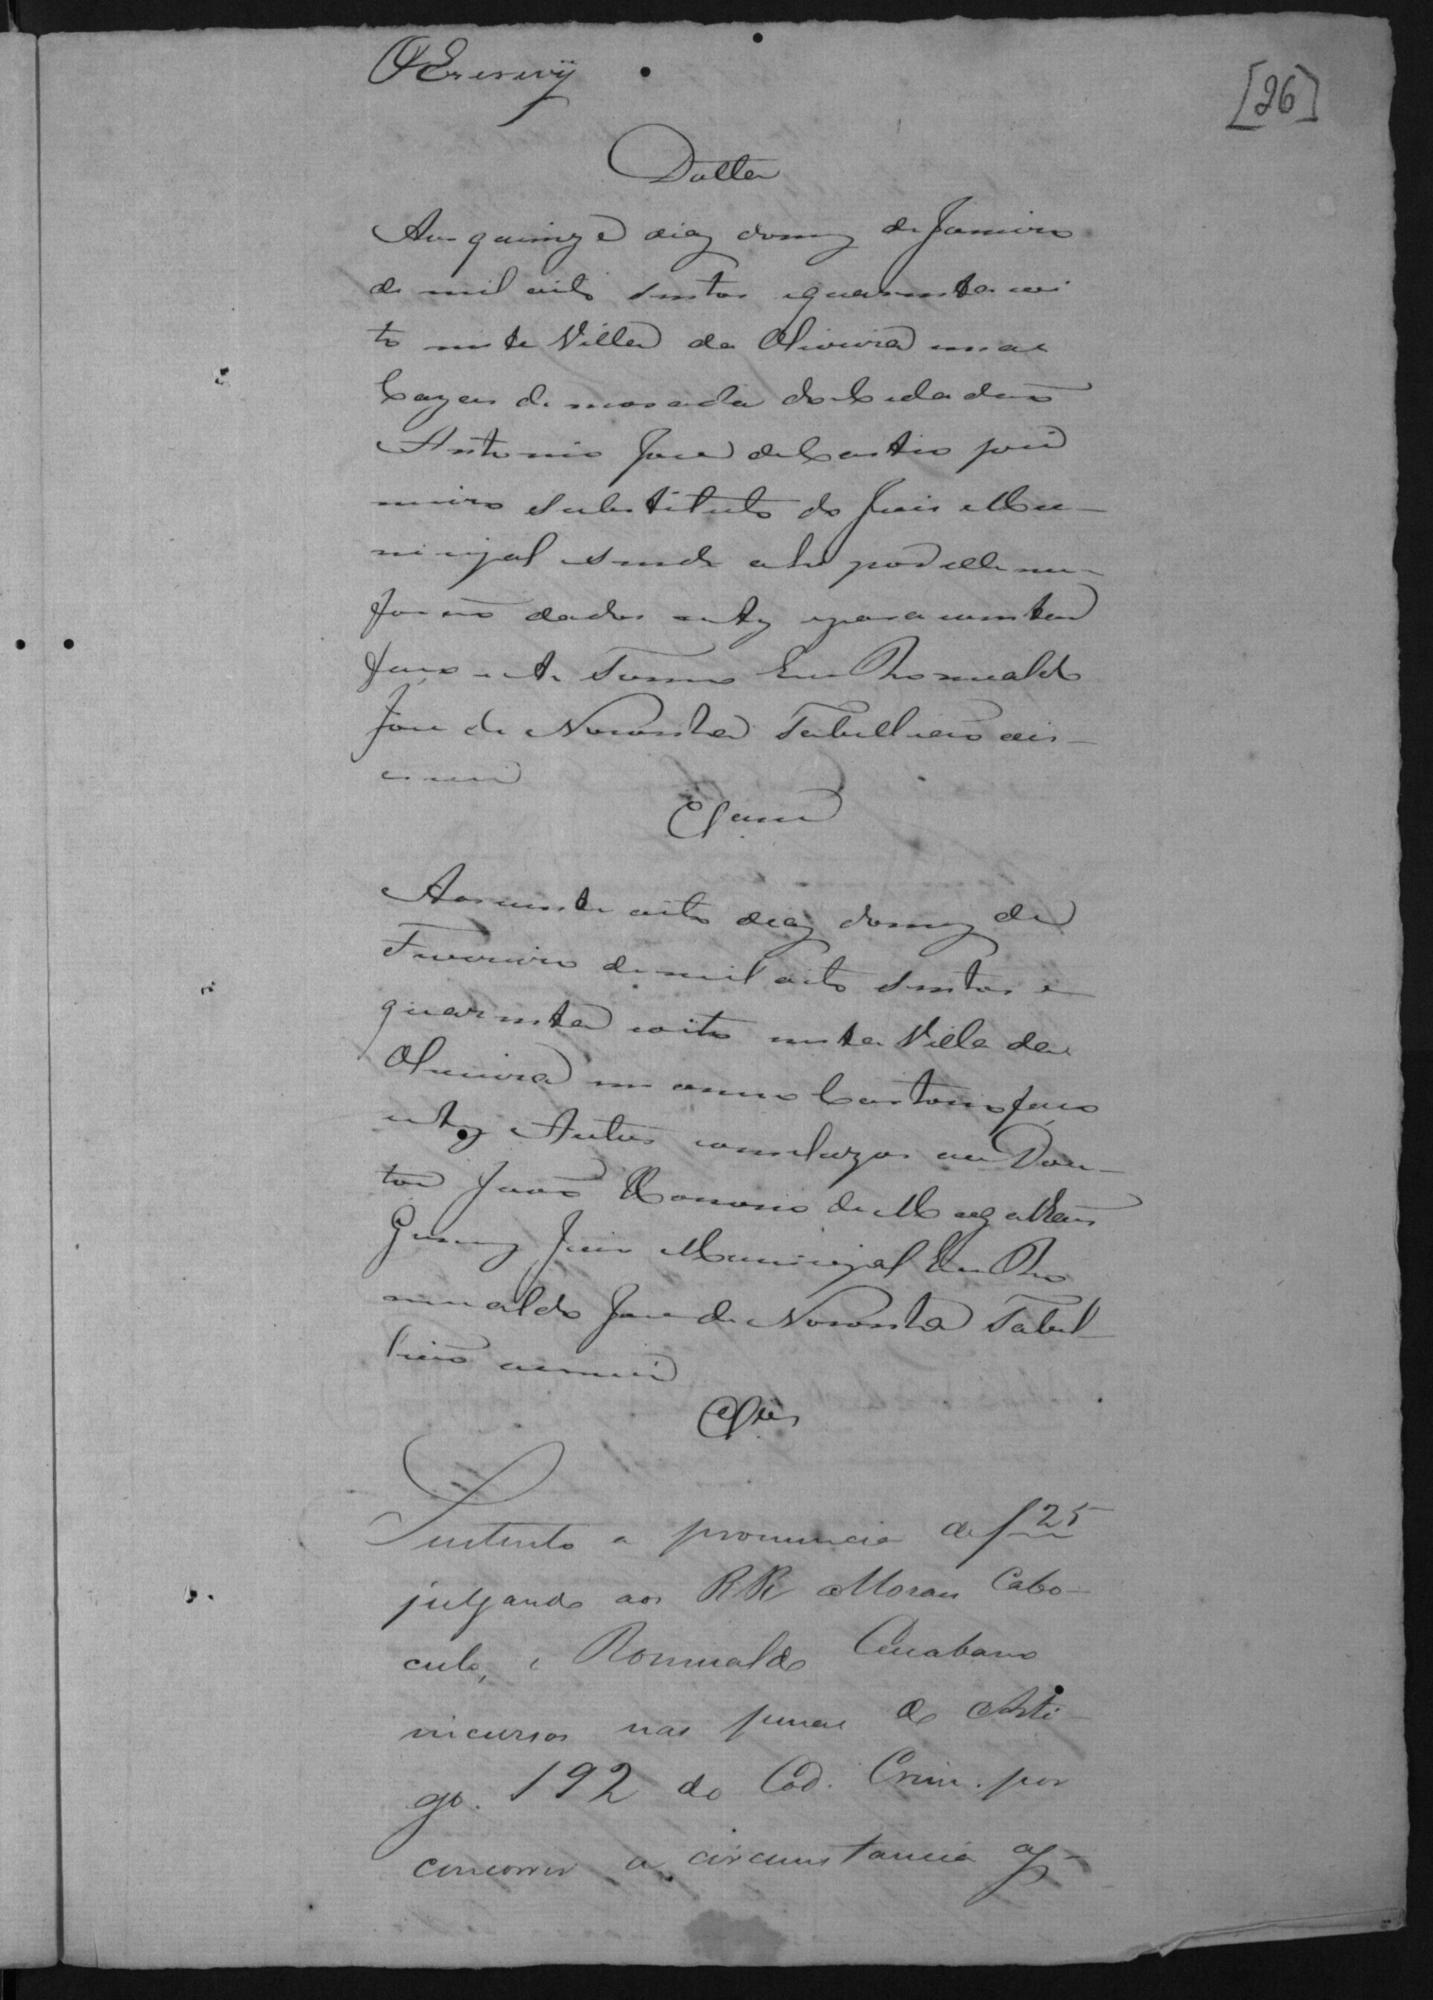 [26]
Datta
Aos quinze dias do mez de Janeiro
de mil oito sentos equarenta eoi
to nesta Villa da Oliveira em as
Cazas de morada do Cidadão
Antonio Jose de Castro pri
meiro substituto do Juis Mu-
nicipal sendo ahi por elle me
forão dados estes e para constar
faço este Termo Eu Romualdo
Jose de Noronha Tabellião es-
crevi
Clzam
Aos vinte oito dias do mez de
Fevereiro de mil oito sentos e
quarenta eoito nesta Villa da
Oliveira em o meu Cartorio faço
estes Autos concluzos ao Dou-
tor João Honorio de Magalhães
Gomes Juis Municipal Eu Ro
mualdo Jose de Noronha Tabel
lião escrevi
Clzos
Sustento a pronuncia de f 25
julgando aos RR Moran Cabo-
culo, e Romualdo
incursos nas penas do Arti-
go. 192 do Cod. Crim. por
concorrer a circunstancia ag-